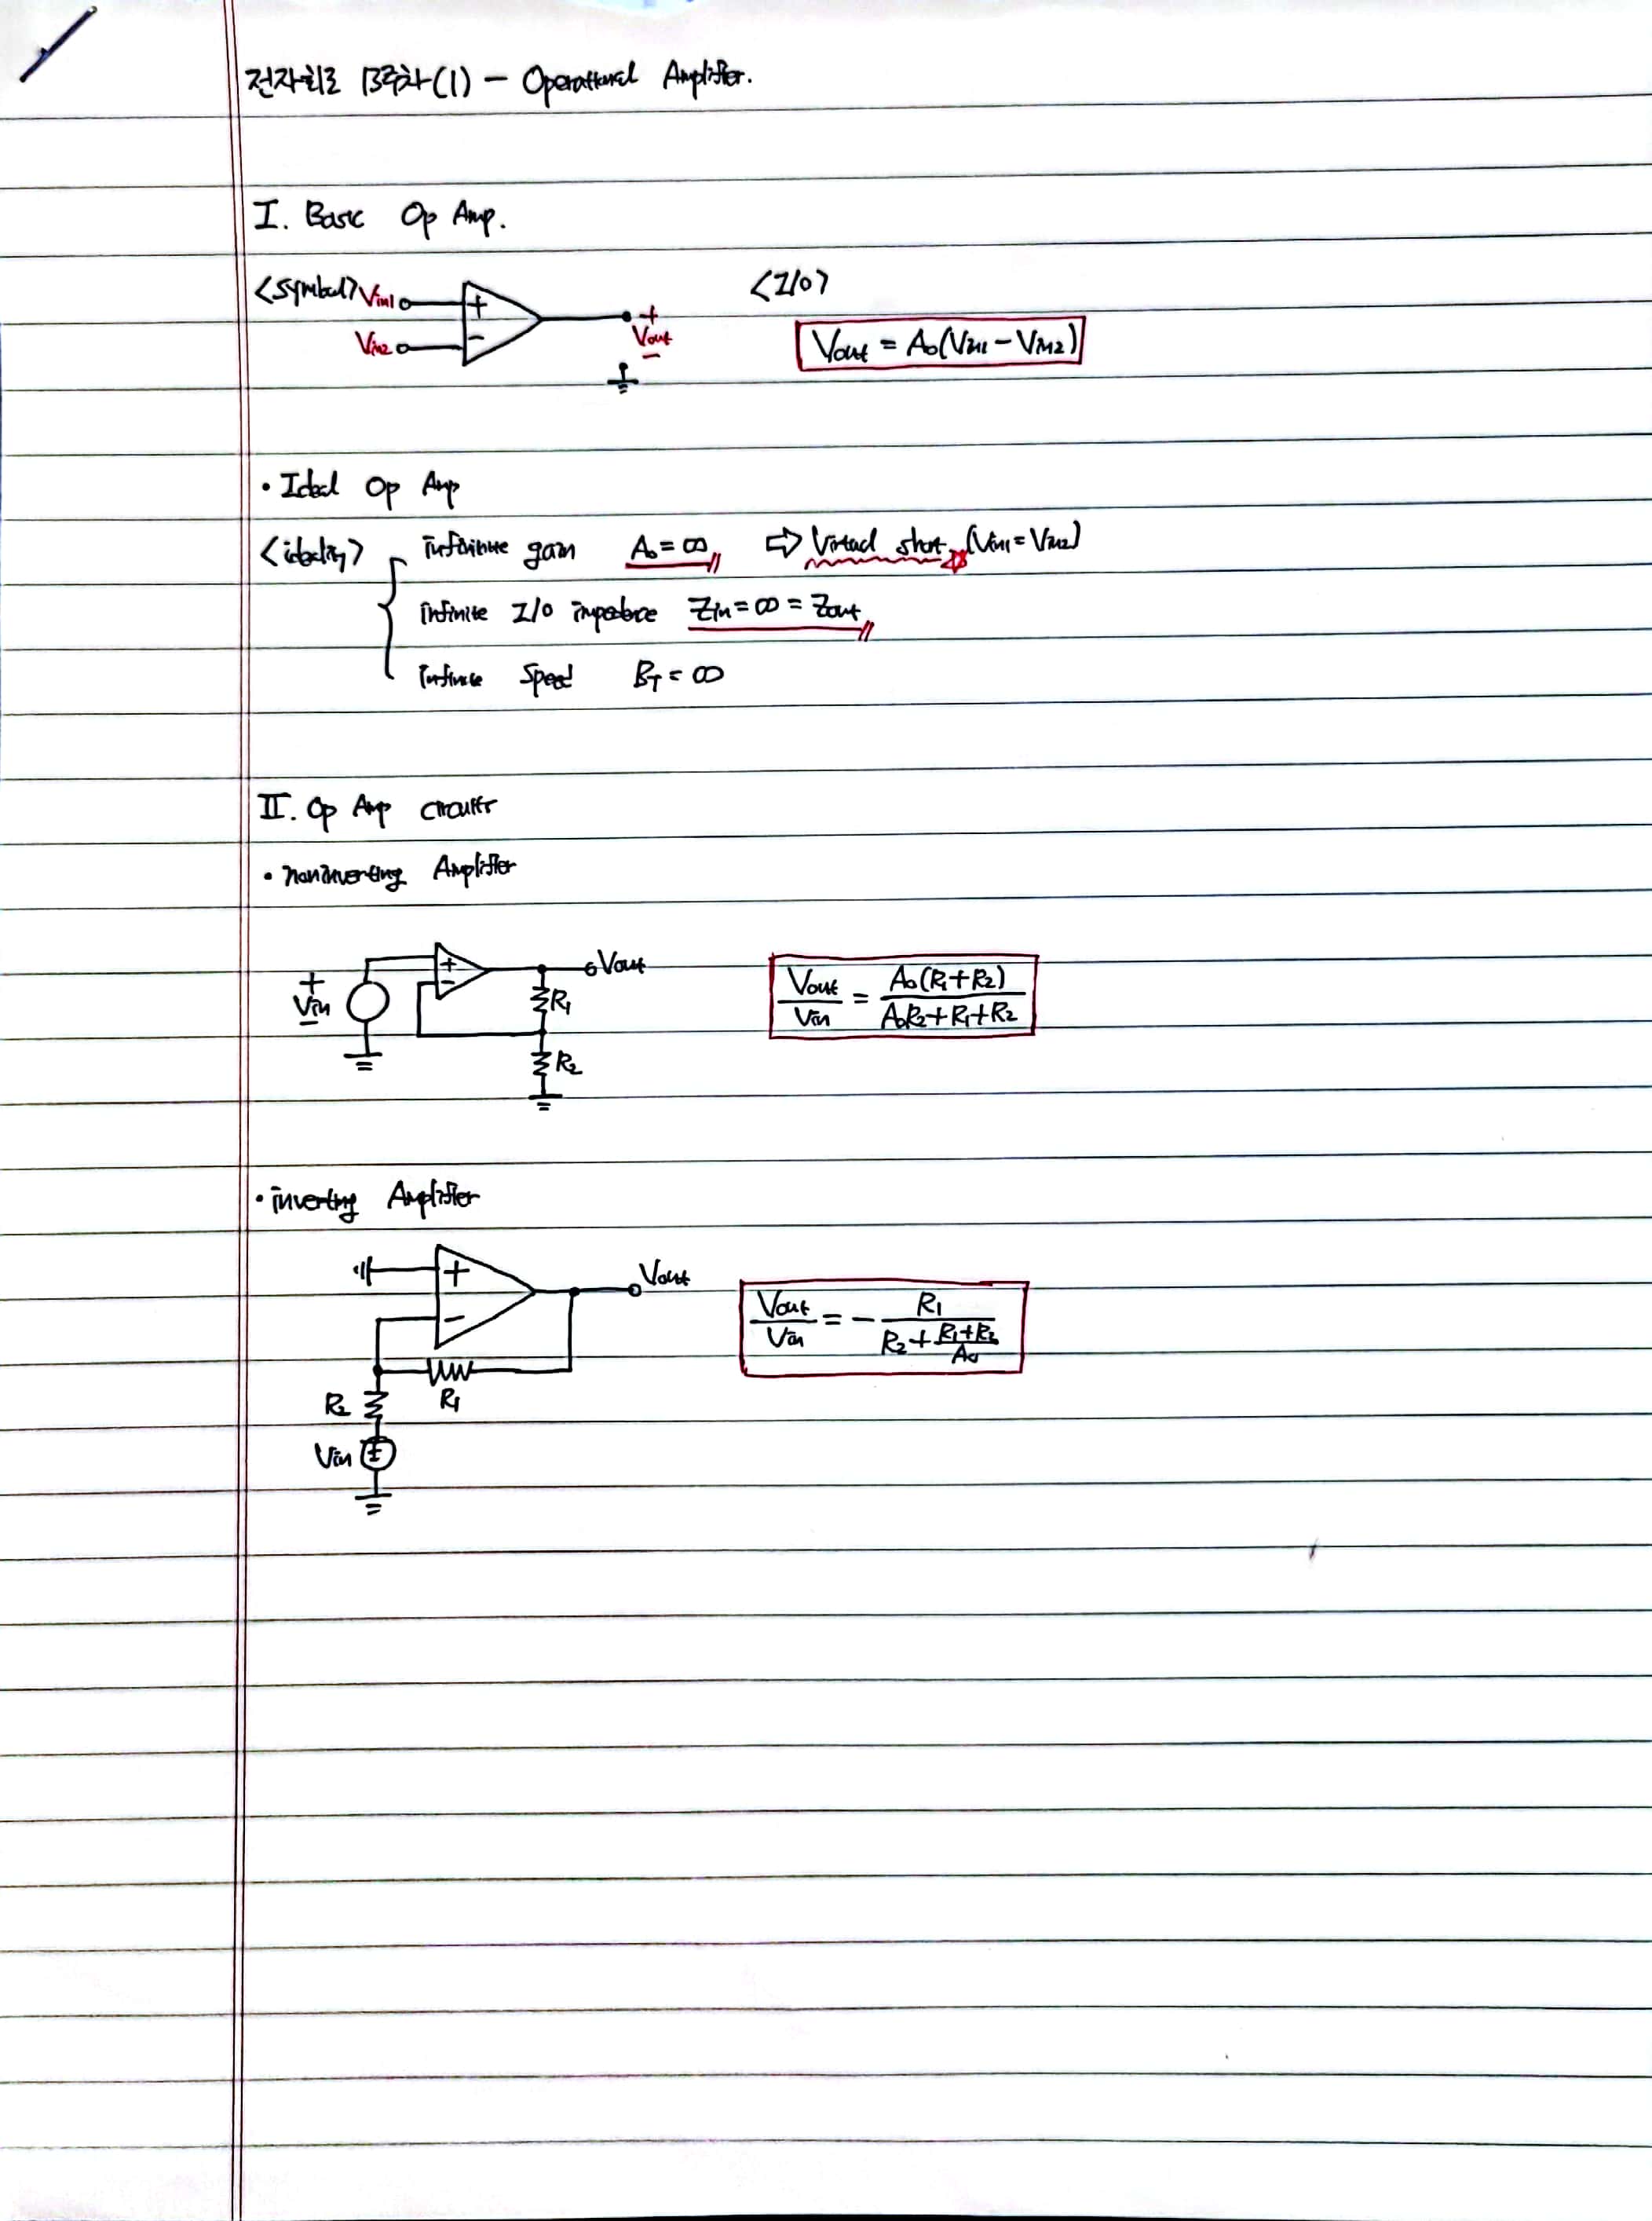 전자회로 13주차(1) - Operational Amplifier.
I. Basic Op Amp.
<symbol> Vin1 + Vin2 - + Vout -
<I/O>
Vout = A0(Vin1 - Vin2)
• Ideal Op Amp
<ideality> infinite gain A0 = ∞ ⇨ Virtual short (Vin1 = Vin2)
infinite I/O impedance Zin = ∞ = Zout
infinite speed BT = ∞
II. Op Amp circuits
• noninverting Amplifier
+ Vin - + - Vout R1 R2
Vout/Vin = A0(R1+R2)/(A0R2+R1+R2)
• inverting Amplifier
+ - Vout
R2 R1
Vin +
Vout/Vin = - R1/(R2 + (R1+R2)/A0)